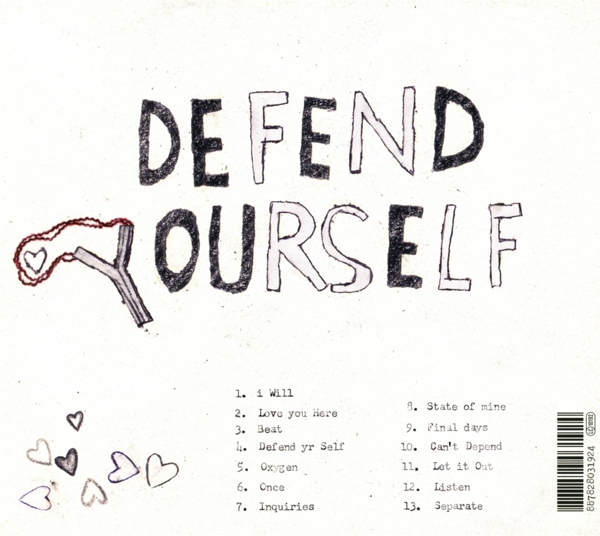 DEFEND
YOURSELF
1. i Will
2. Love you Here
3. Beat
4. Defend yr Self
5. Oxygen
6. Once
7. Inquiries
8. State of mine
9. Final days
10. Can't Depend
11. Let it Out
12. Listen
13. Separate
887828031924